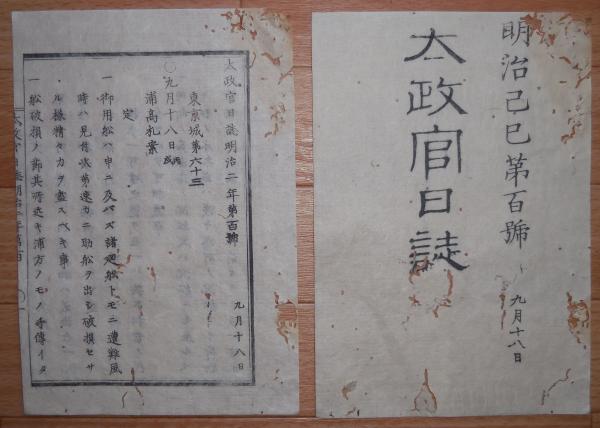 明治己巳第百號
太政官日誌
九月十八日
太政官日誌明治二年第百號
九月十八日
東京城第六十三
〇九月十八日
浦高札案
定
一御用船ハ申ニ及バズ諸廻船トモニ遭難風
時ハ見掛次第速カニ助船ヲ出シ破損セサ
ル様精々力ヲ盡スベキ事
一船破損ノ節其所近キ浦方ノモノ手傳イタ